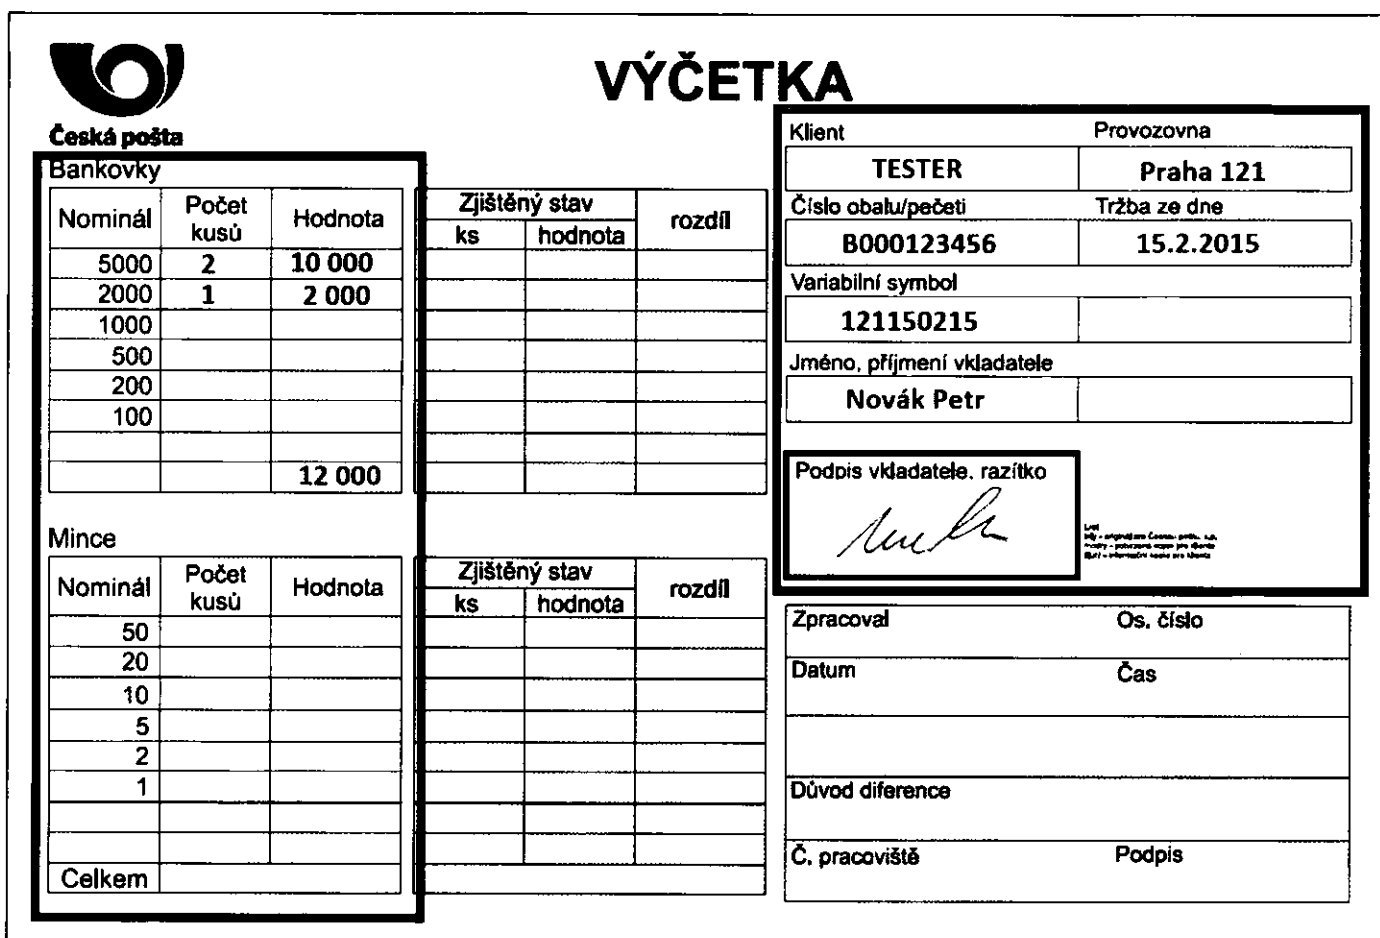 VÝČETKA
Česká pošta
Bankovky
Nominál Počet kusů Hodnota Zjištěný stav rozdíl
ks hodnota
5000 2 10 000
2000 1 2 000
1000
500
200
100
12 000
Mince
Nominál Počet kusů Hodnota Zjištěný stav rozdíl
ks hodnota
50
20
10
5
2
1
Celkem
Klient Provozovna
TESTER Praha 121
Číslo obalu/pečeti Tržba ze dne
B000123456 15.2.2015
Variabilní symbol
121150215
Jméno, příjmení vkladatele
Novák Petr
Podpis vkladatele, razítko
Zpracoval Os. číslo
Datum Čas
Důvod diference
Č. pracoviště Podpis